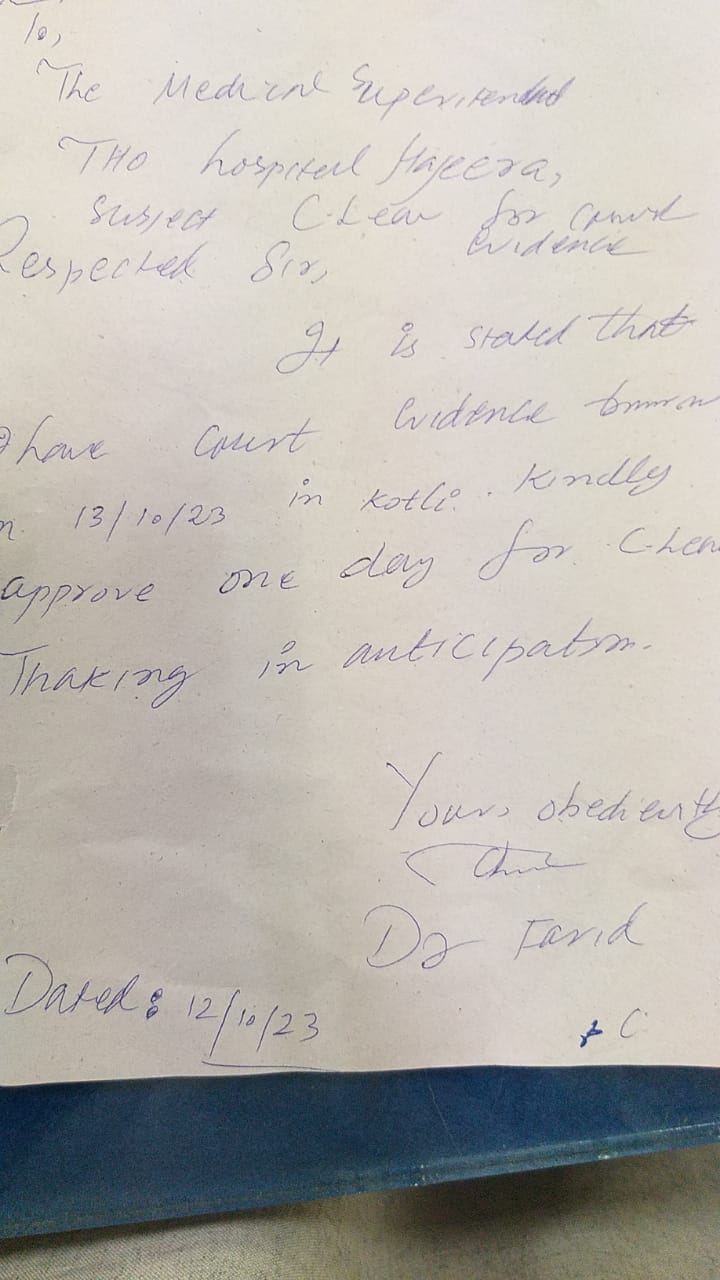 To,
The Medical Superitendent
THO hospital Hajeera,
Subject C-Leav for court
evidence
Respected Sir,
It is stated that
I have court evidence tomorrow
on 13/10/23 in Kotli. Kindly
approve one day for C-Leav
Thaking in anticipation.
Yours obediently
Dr Farid
Dated: 12/10/23